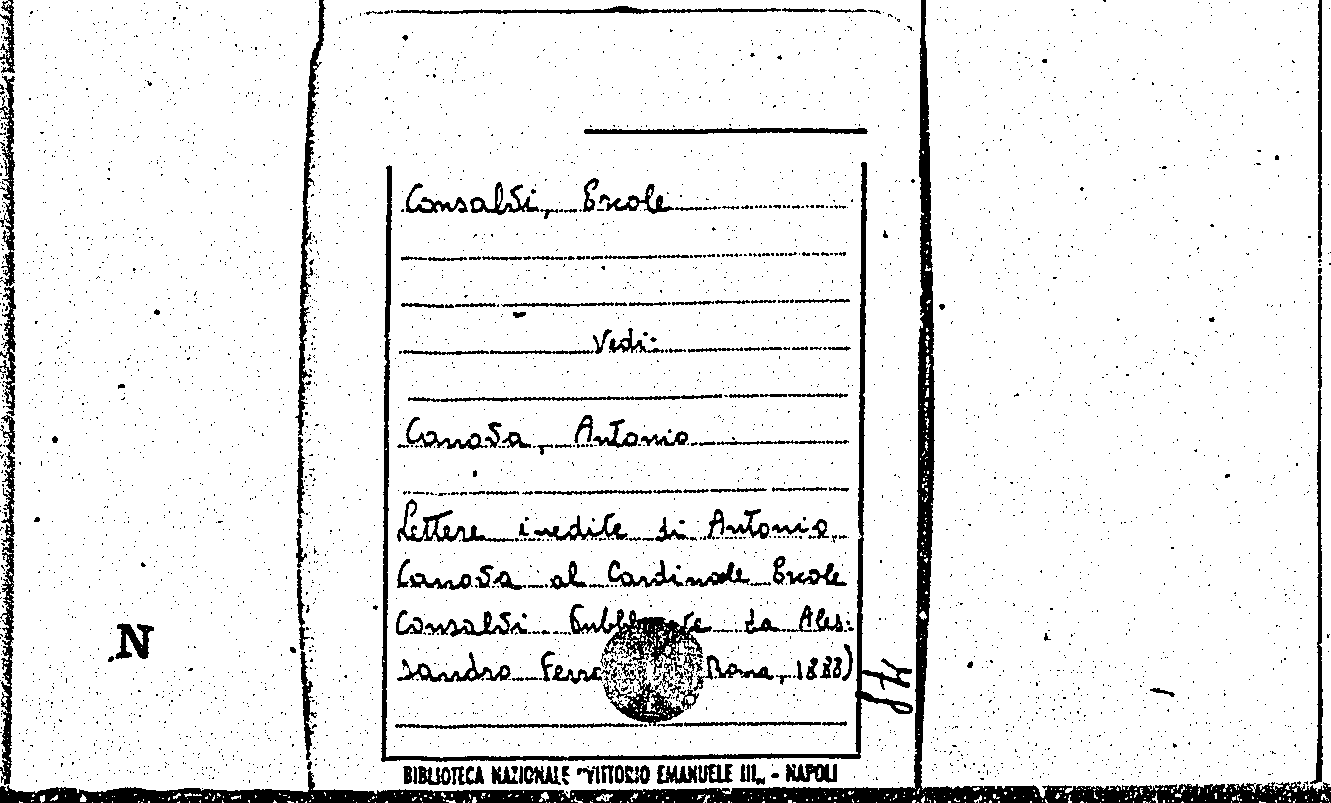 Consalvi, Ercole
Vedi:
Canova, Antonio
Lettere inedite di Antonio
Canova al Cardinale Ercole
Consalvi Pubblicate da Ales:
sandro Roma, 1888)
N
BIBLIOTECA NAZIONALE "VITTORIO EMANUELE III„ - NAPOLI